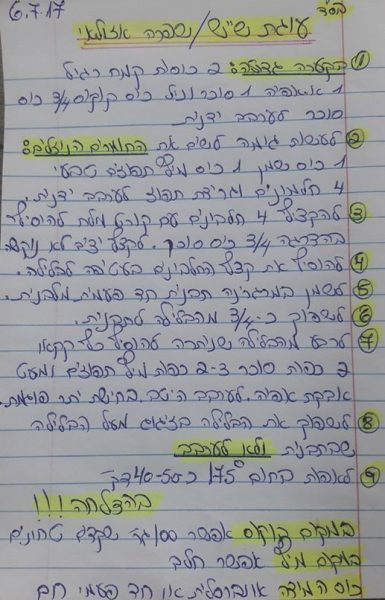 בס״ד
6.7.17
עוגת שיש / שפרה אזולאי
1 בקערה גדולה: 2 כוסות קמח רגיל
1 אבקת אפיה 1 סוכר וניל כוס קוקוס 3/4 כוס
סוכר לערבב ידנית
2 לעשות גומה לשים את החומרים הנוזלים:
1 כוס שמן 1 כוס מיץ תפוזים טבעי
4 חלמונים וגרידת תפוז לערבב ידנית.
3 להקציף 4 חלבונים עם קורט מלח להוסיף
בהדרגה 3/4 כוס סוכר. לקצף יציב לא נוקשה
4 להוסיף את קצף החלבונים בעטיפה לבלילה.
5 לשמן במרגרינה תבנית חד פעמית מלבנית.
6 לשפוך כ-3/4 מהבלילה לתבנית.
7 לרבע מהבלילה שנותרה להוסיף כף קקאו
2 כפות סוכר 2-3 כפות מיץ תפוזים ומעט
אבקת אפיה. לערבב היטב. בחישת יתר פוגמת.
8 לשפוך את הבלילה בזיגזג מעל הבלילה
שבתבנית ולא לערבב
9 לאפות בחום 175° כ 40-50 דק׳
בהצלחה!!!
במקום קוקוס אפשר 100 גר׳ שקדים טחונים
במקום מיץ אפשר חלב
כוס המידה אוניברסלית או חד פעמי חם